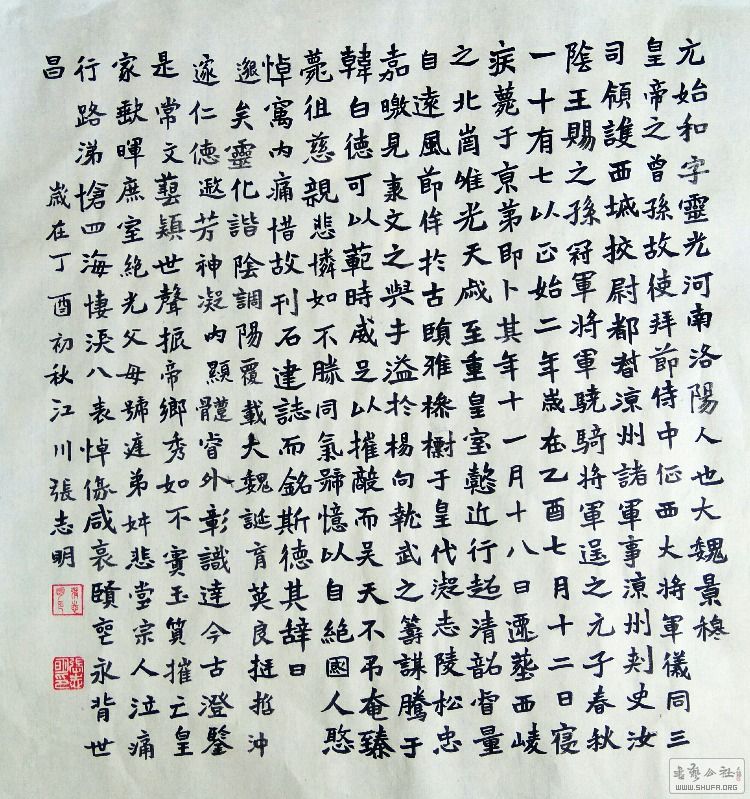 元始和字靈光河南洛陽人也大魏景穆
皇帝之曾孫故使持節侍中征西大將軍儀同三
司領護西域挍尉都督涼州諸軍事涼州刺史汝
陰王賜之孫冠軍將軍驍騎將軍逞之元子春秋
一十有七以正始二年歲在乙酉七月十二日寢
疾薨于京第即卜其年十一月十八日遷塟西崚
之北崗唯光天戚至重皇室懿近行超清韶睿量
自遠風節侔於古頤雅樹于皇代凝志陵松忠
嘉曒見乘文之與才溢於楊向執武之籌謀騰于
韓白德可以範時威足以摧敵而吴天不弔奄臻
薨徂慈親悲憐如不勝同氣號憶以自絕國人愍
悼寓內痛惜故刊石建誌而銘斯德其辭曰
邈矣靈化諧陰調陽覆載大魏誕育英良挺哲沖
邃仁德遨芳神凝內顯體睿外彰識達今古澄鑒
是常文藝穎世聲振帝鄉秀如不實玉質摧亡皇
家歔暉庶室絕光父母號弟姊悲堂宗人泣痛
行路涕愴四海悽淚八表悼傷咸哀頤永背世
昌
歲在丁酉初秋江川張志明
書藝公社
WWW.SHUFA.ORG